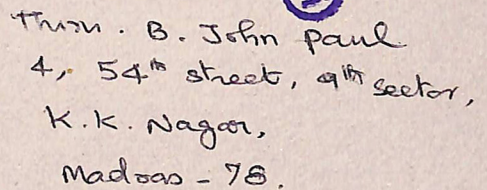 Thiru. B. John Paul
4, 54th street, 9th sector,
K.K. Nagar,
Madras - 78.